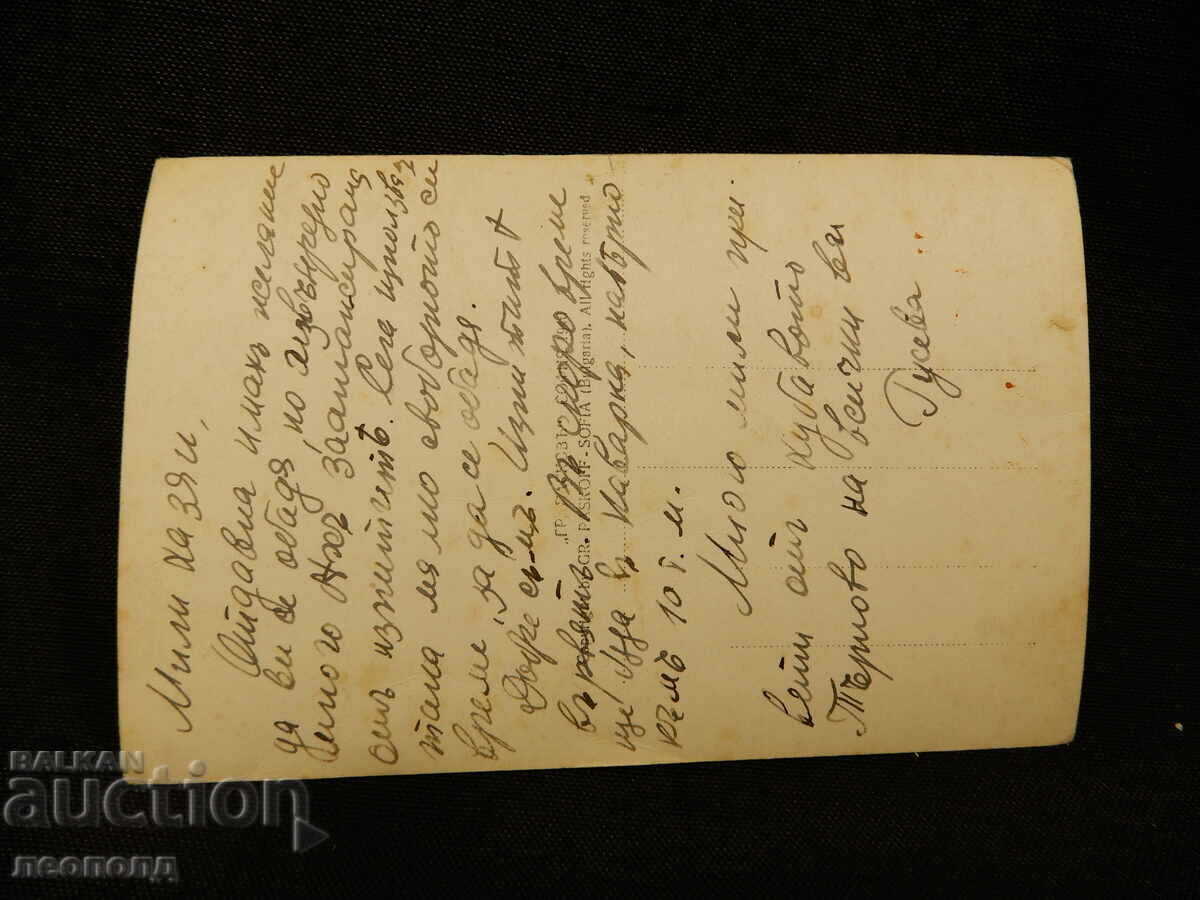 Мили хазяи,
Отдавна имахъ желание
да ви се обадя, но извънредно
много бѣхъ заангажирана
отъ изпититѣ. Сега използвах
мо свободното си
време, за да се обадя.
Добре съмъ. Изпититѣ
вървятъ. Въ скоро време
ще дода въ Каварна, навѣрно
къмъ 10 т. м.
Много мили при
вети отъ хубавото
Търново на всички ви
Гусева
„ГР. ПАСКОВЪ" СОФИЯ
GR. PASKOFF - SOFIA (Bulgaria). All rights reserved
BALKAN
auction
леополд